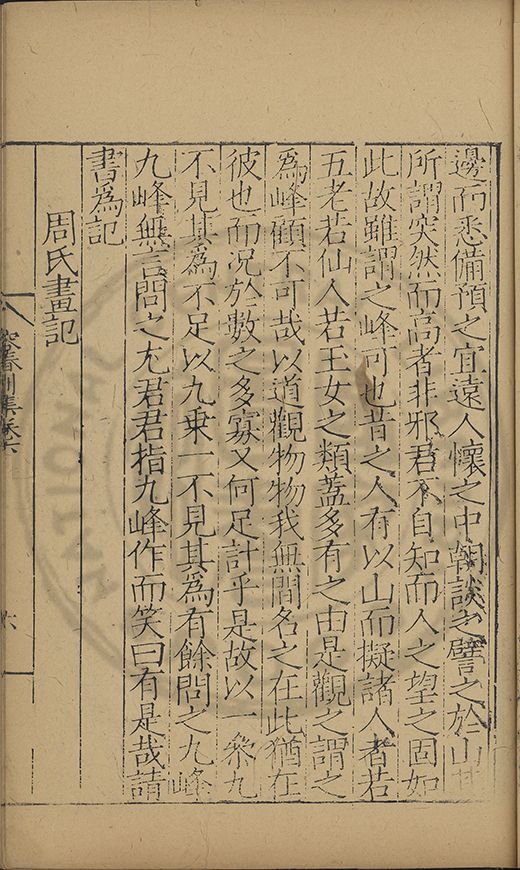 邊而悉備預之宜遠人懷之中朝談之譬之於山其
所謂突然而高者非邪君不自知而人之望之固如
此故雖謂之峰可也昔之人有以山而擬諸人者若
五老若仙人若玉女之類蓋多有之由是觀之謂之
為峰顧不可哉以道觀物物我無間名之在此猶在
彼也而况於數之多寡又何足計乎是故以一參九
不見其為不足以九乗一不見其為有餘問之九峰
九峰無言問之尤君君指九峰作而笑曰有是哉請
書為記
周氏畫記
容春別集卷六
六